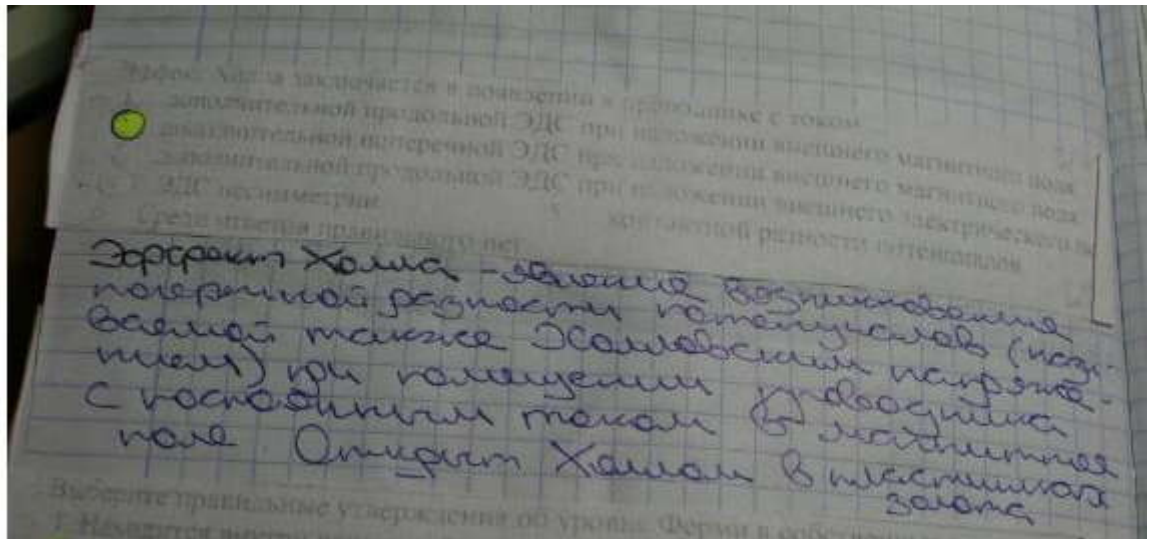 Эффект Холла заключается в появлении в проводнике с током
дополнительной продольной ЭДС при наложении внешнего магнитного поля
дополнительной поперечной ЭДС при наложении внешнего магнитного поля
дополнительной продольной ЭДС при наложении внешнего электрического
ЭДС несимметрии контактной разности потенциалов
Среди ответов правильного нет
Эффект Холла - явление возникновения
поперечной разности потенциалов (назы-
ваемой также Холловским напряже-
нием) при помещении проводника
с постоянным током в магнитное
поле Открыт Холлом в пластинках
золота
Выберите правильные утверждения об уровне Ферми в
1. Находится внутри